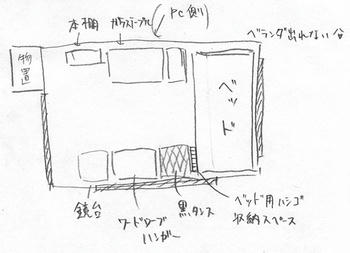 本棚
ガラステーブル
(PC側)
ベランダ出れない台
物置
ベッド
鏡台
ワードローブ
ハンガー
黒タンス
ベッド用ハシゴ
収納スペース